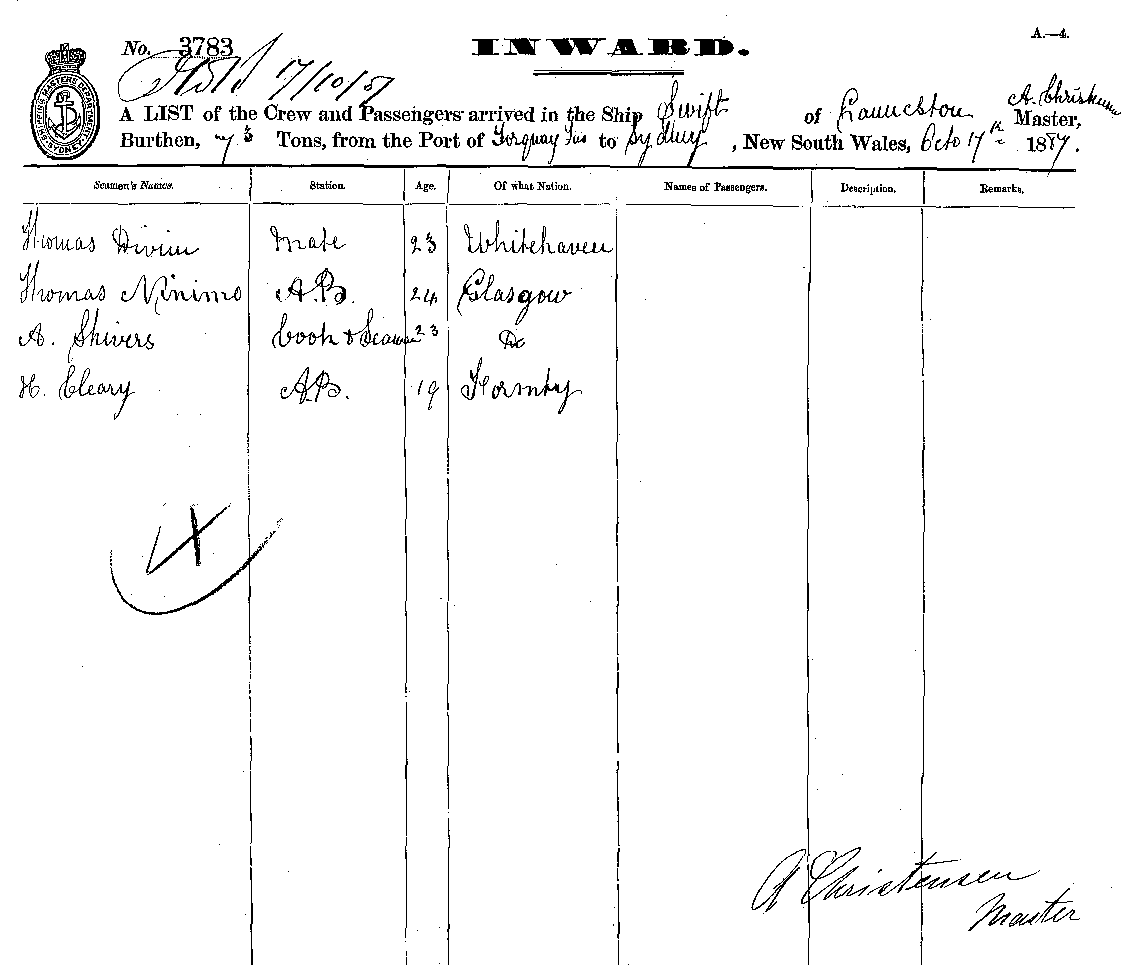 No. 3783
INWARD.
A.—4.
17/10/87
A LIST of the Crew and Passengers arrived in the Ship Swift of Launceston A. Christensen Master,
Burthen, 73 Tons, from the Port of Torquay Tas to Sydney, New South Wales, Octo 17th 1887.
SHIPPING MASTERS DEPARTMENT SYDNEY
Seamen's Names. Station. Age. Of what Nation. Names of Passengers. Description. Remarks.
Thomas Divin Mate 23 Whitehaven
Thomas Minimo A.B. 24 Glasgow
A. Shivers Cook & Seaman 23 Do
H. Cleary A.B. 19 Formby
A Christensen
Master